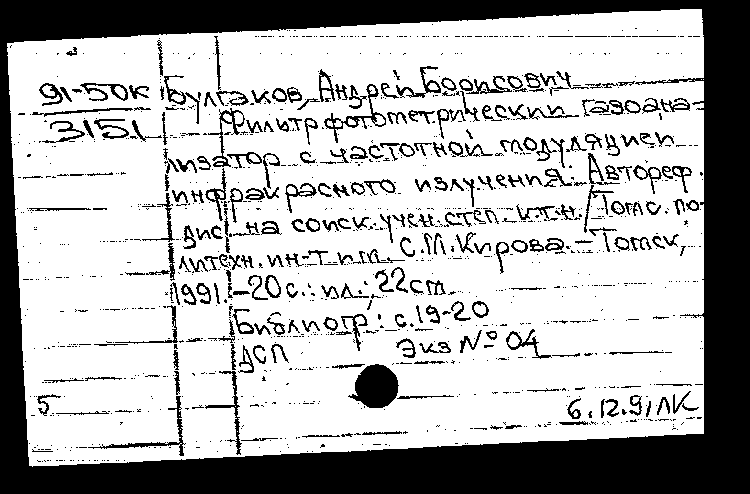 91-50к
3151
Булгаков, Андрей Борисович
Фильтрфотометрический газоана=
лизатор с частотной модуляцией
инфракрасного излучения: Автореф.
дис. на соиск. учен. степ. к.т.н. / Томс. по-
литехн. ин-т им. С.М. Кирова. – Томск,
1991. – 20 с.: ил.; 22 см
Библиогр: с. 19-20
ДСП Экз № 04
5
6.12.91 ЛК